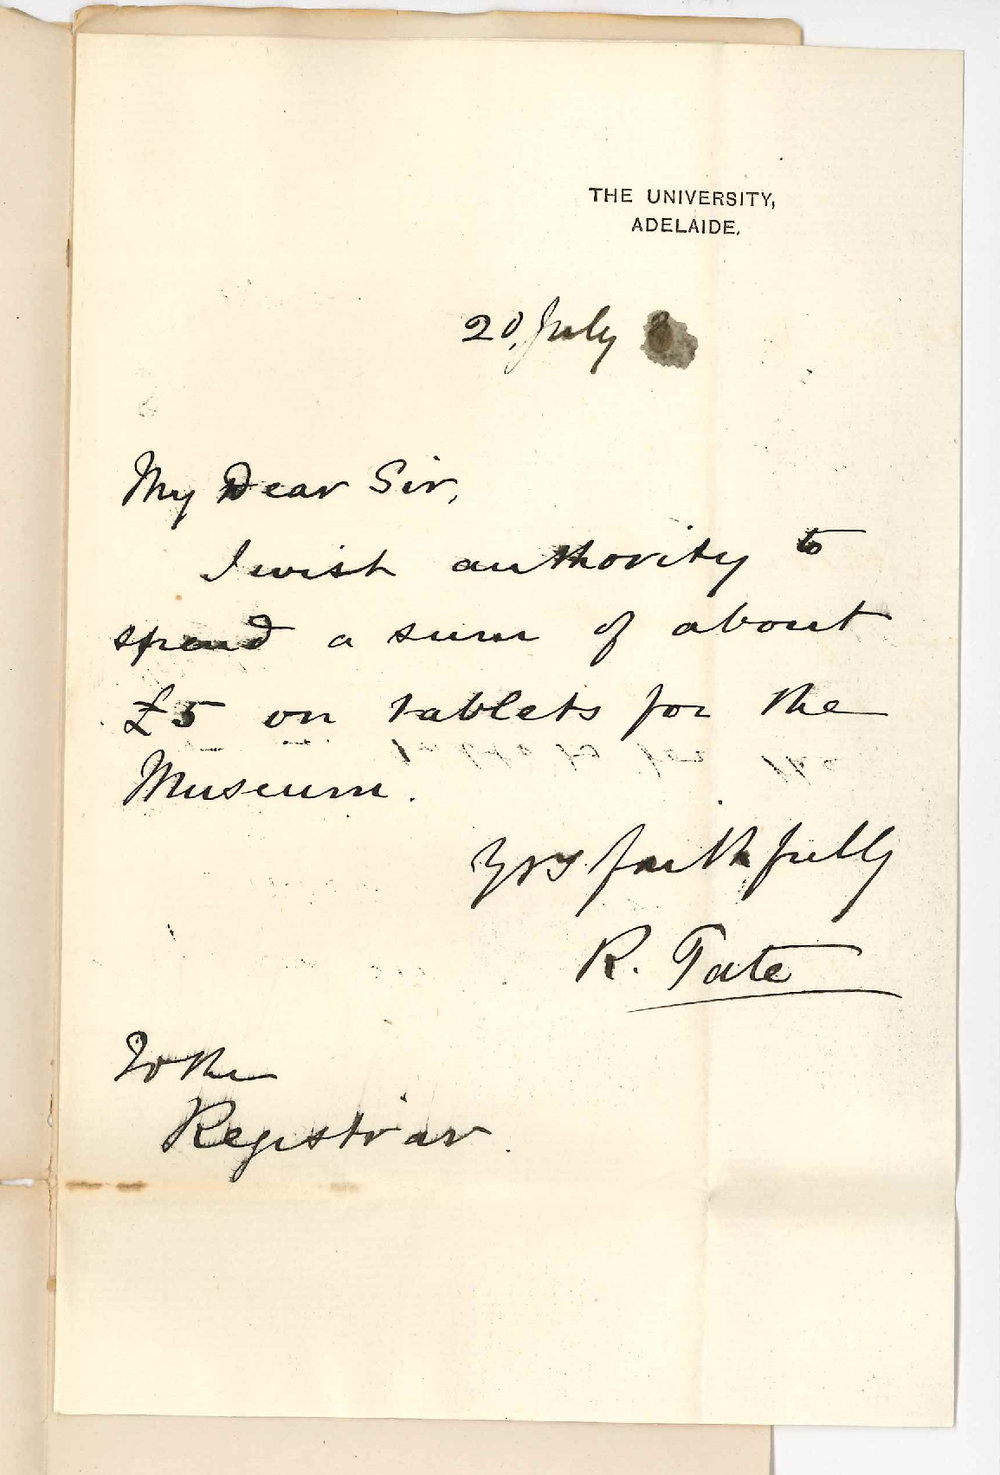 THE UNIVERSITY,
ADELAIDE.
20, July
My Dear Sir,
I wish authority to
spend a sum of about
£5 on tablets for the
Museum.
Yrs faithfully
R. Tate
To the
Registrar.